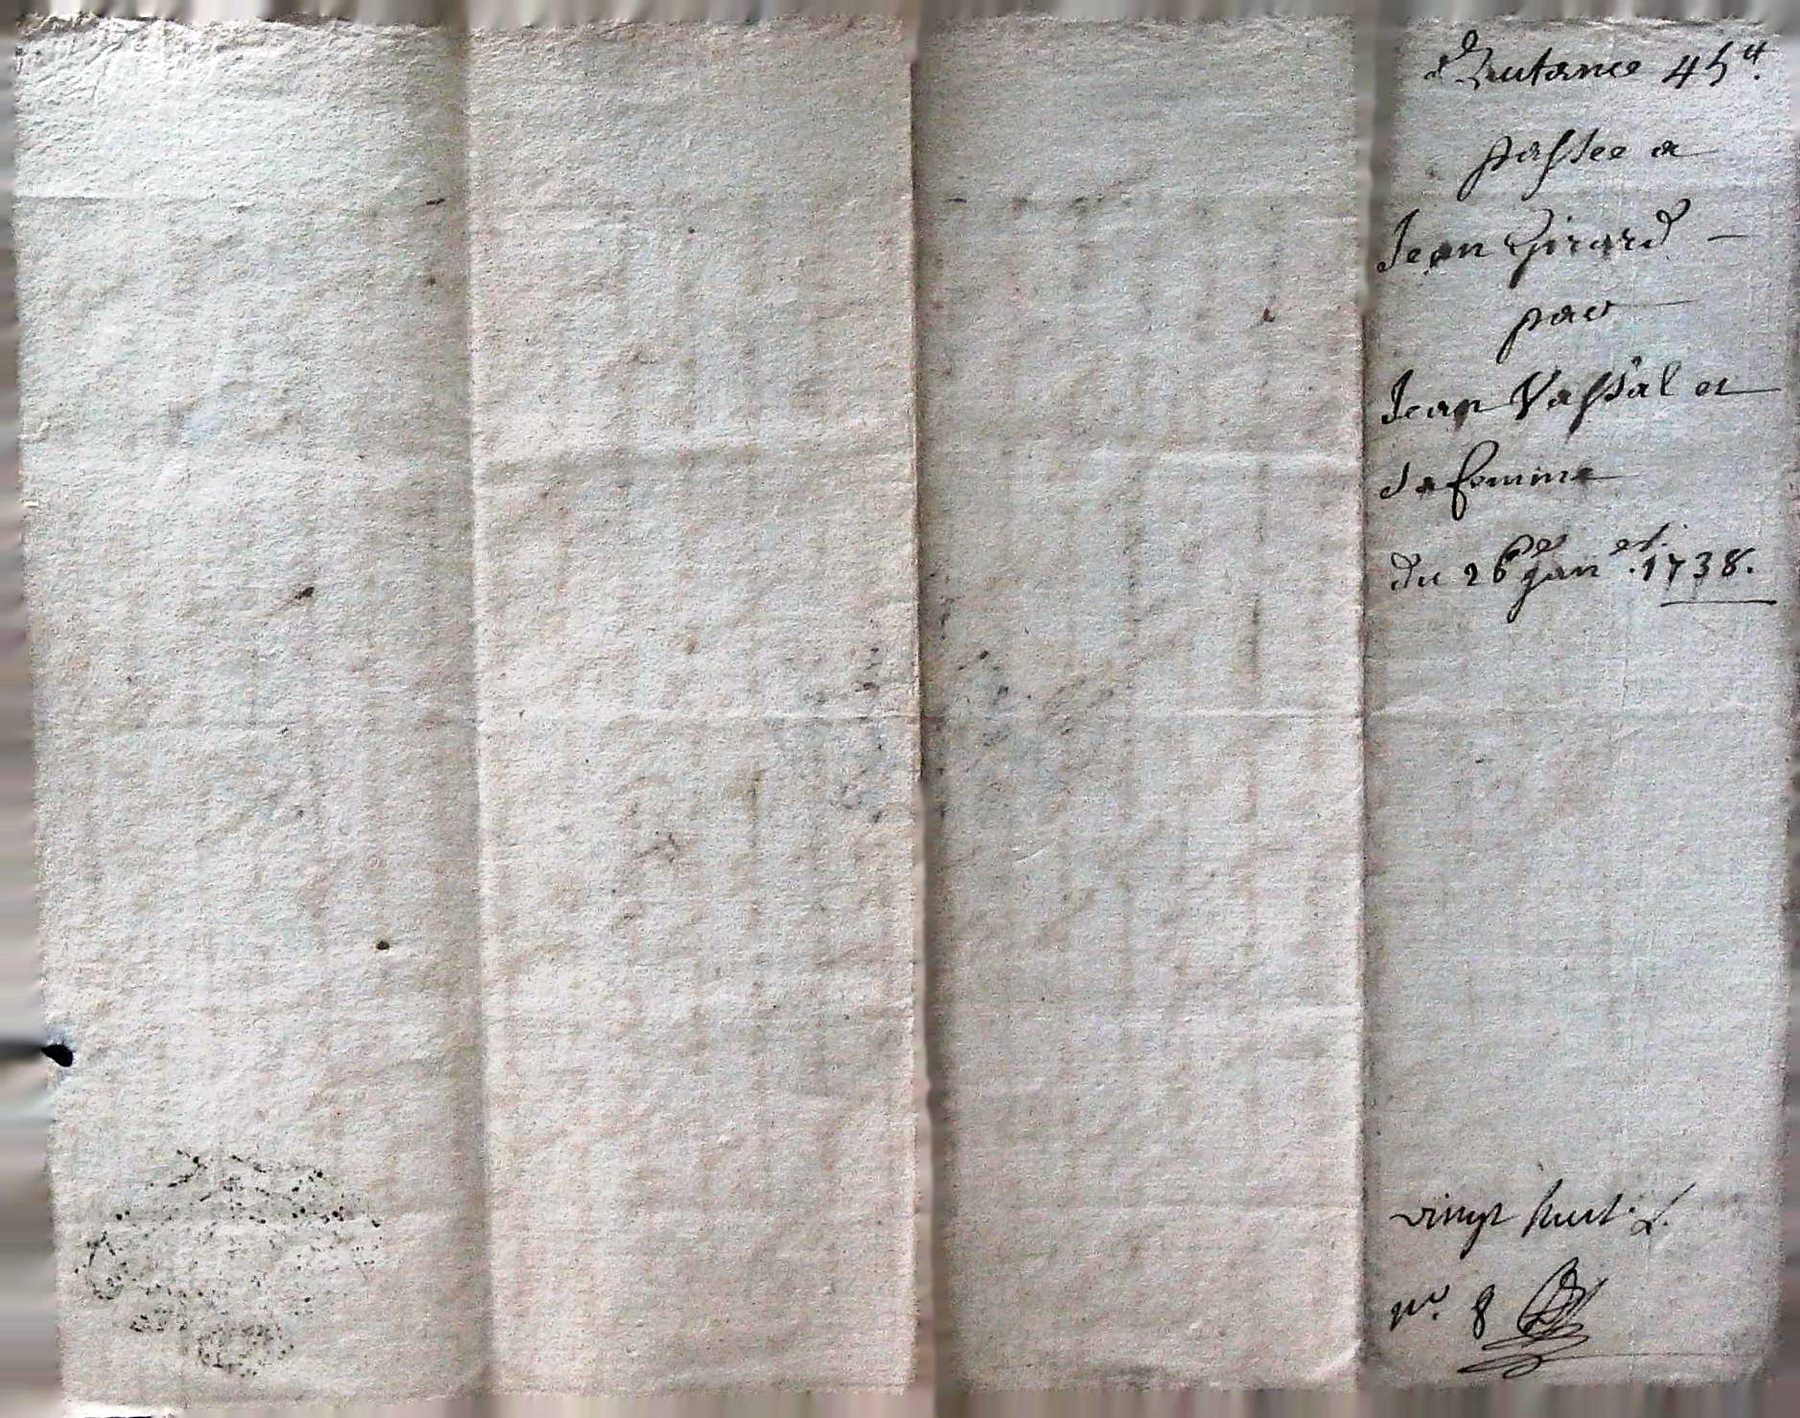 Quutance 45ᵗᵗ.
passee a
Jean Girard –
par
Jean Vassal et
sa femme
du 26ᵉ janᵉʳ. 1738.
vingt huit.
nᵒ. 8